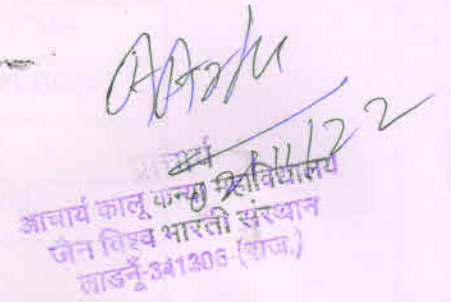 प्राचार्य
02/11/22
आचार्य कालू कन्या महाविद्यालय
जैन विश्व भारती संस्थान
लाडनूँ-341306 (राज.)